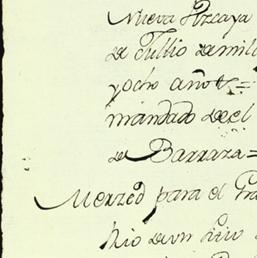 Nueva Vizcaya
de Jullio de mill
y ocho años =
mandado de el
de Barraza =
Merzed para el
hio de vn